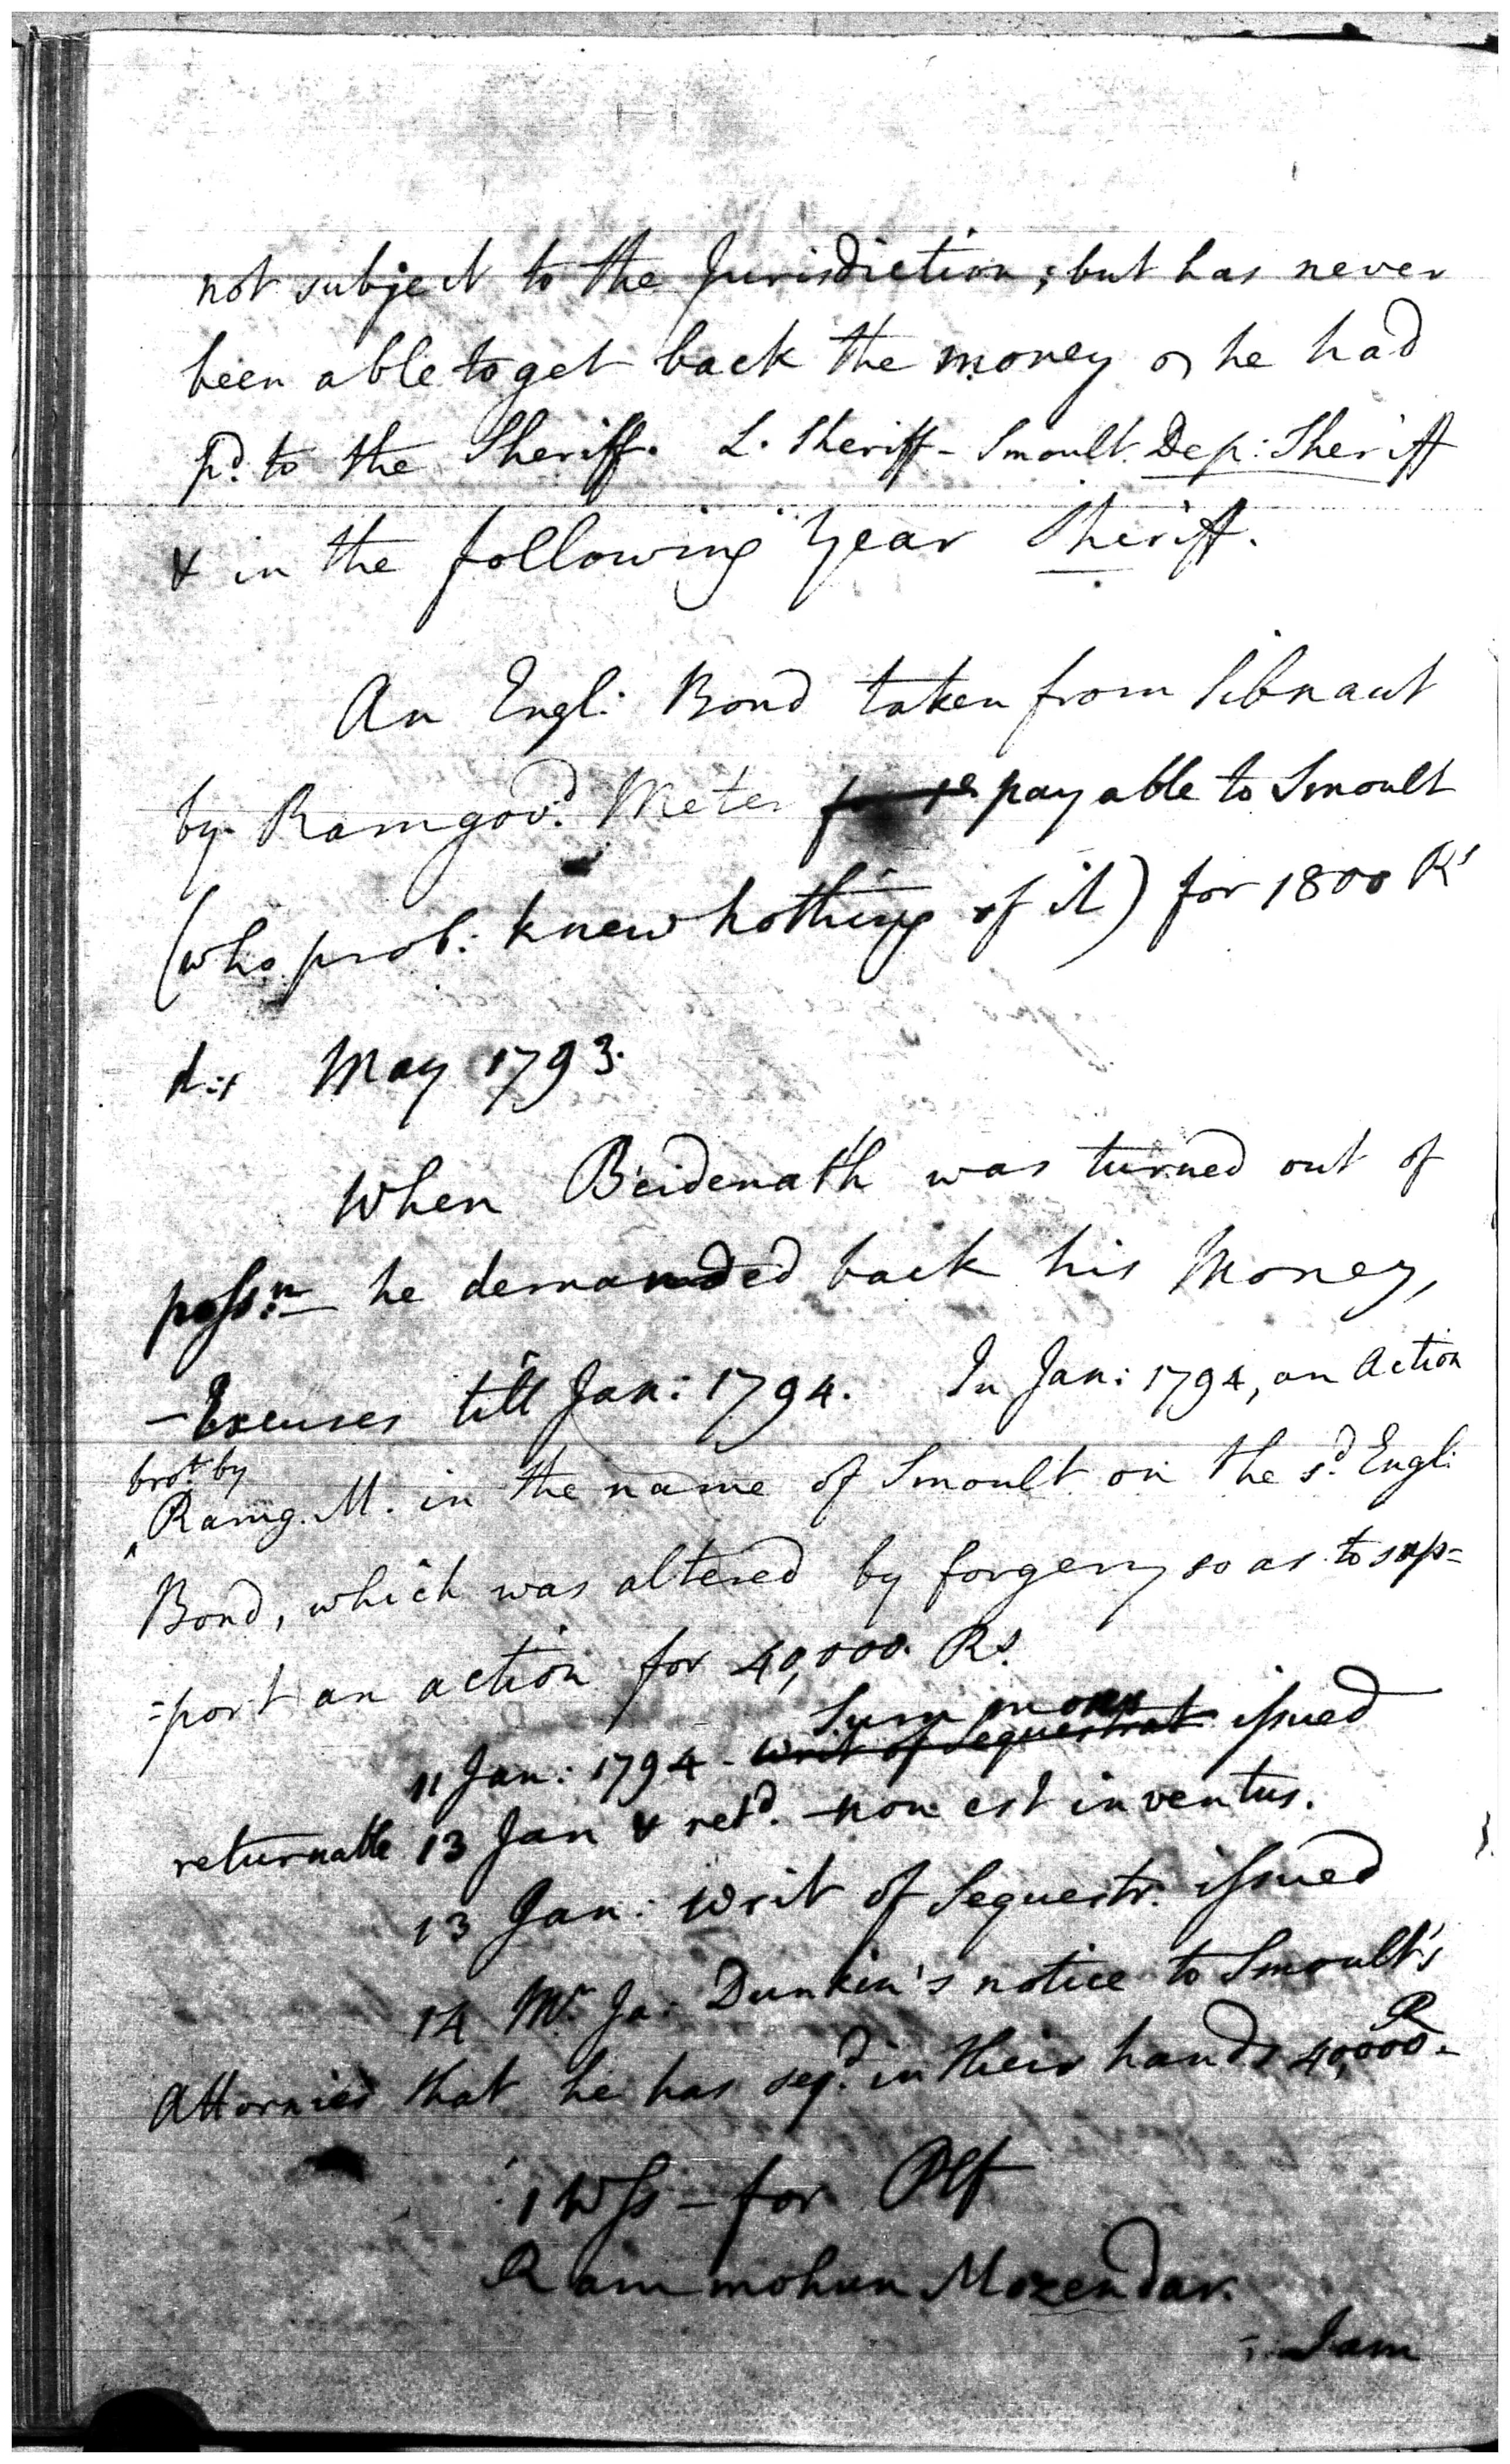 not subject to the Jurisdiction; but has never
been able to get back the money he had
pd. to the Sheriff. L. Sheriff - Smoult. Dep: Sheriff
& in the following Year Sheriff.
An Engl: Bond taken from Sibnaut
by Ramgovd. Meter payable to Smoult
(who prob: knew nothing of it) for 1800 Rs
May 1793.
When Beidenath was turned out of
possn. he demanded back his Money,
- Excuses till Jan: 1794. In Jan: 1794, an Action
brot. by
^ Ramg. M. in the name of Smoult on the sd. Engl:
Bond, which was altered by forgery so as to sup=
=port an action for 40,000. Rs.
Summons
11 Jan: 1794 - Writ of Sequestrat issued
returnable 13 Jan & retd. - non est inventus.
13 Jan: Writ of Sequestr: issued
14 Mr. Ja: Dunkin's notice to Smoult's
Attornies that he has seqd. in their hands 40,000 R
1 Wss - for Plf
Rammohun Mozendar.
I am